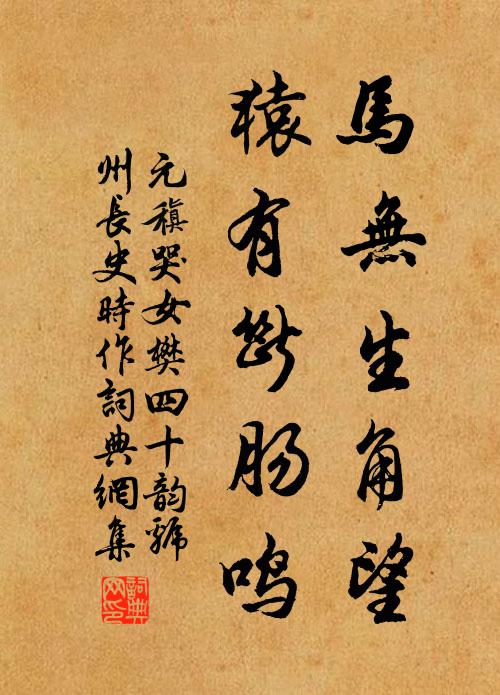 馬無生角望
猿有斷腸鳴
元稹哭女樊四十韵虢
州長史時作詞典網集
詞典网印